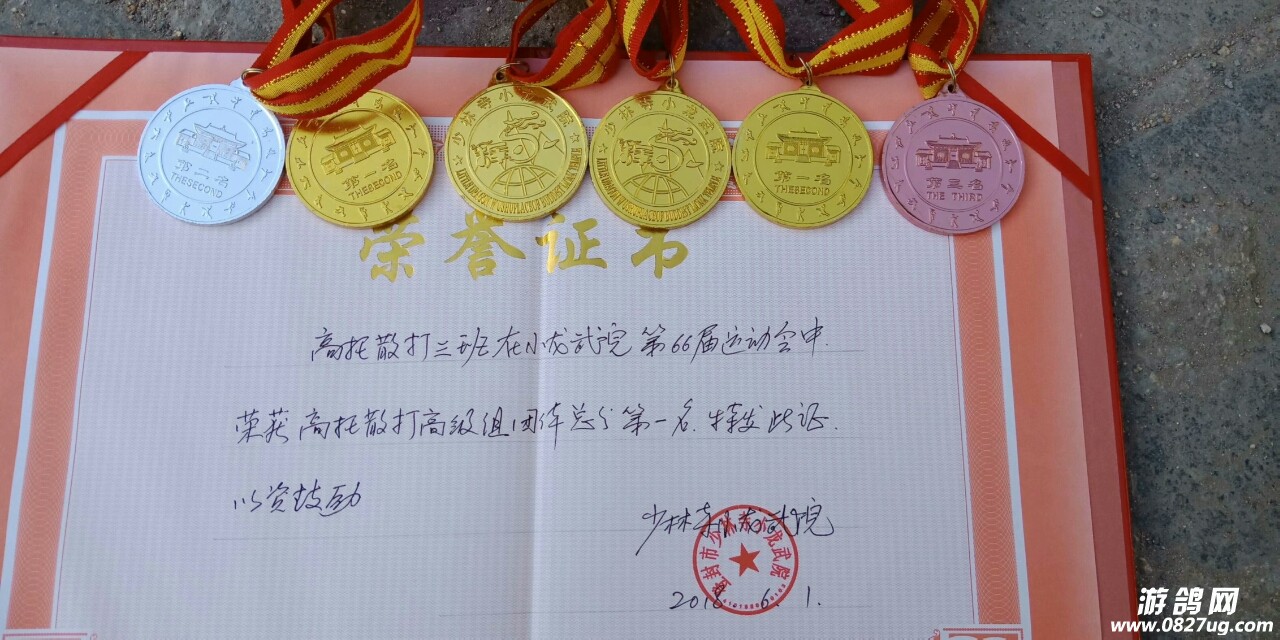 第二名
THESECOND
第一名
THESECOND
少林寺小龙武院
少林寺小龙武院
第一名
THESECOND
第三名
THE THIRD
荣誉证书
高托散打三班在小龙武院第66届运动会中.
荣获高托散打高级组团体总分第一名.特发此证.
以资鼓励
少林寺小龙武院
登封市少林寺小龙武院
2018.6.1.
游鸽网
www.0827ug.com